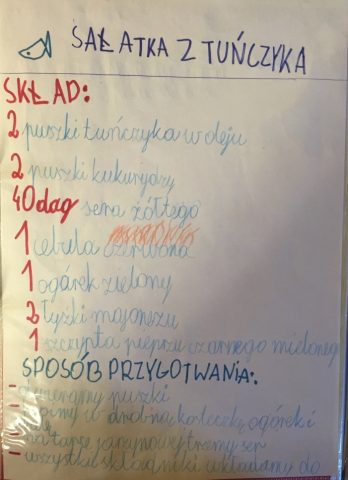 SAŁATKA Z TUŃCZYKA
SKŁAD:
2 puszki tuńczyka w oleju
2 puszki kukurydzy
40dag sera żółtego
1 cebula czerwona
1 ogórek zielony
2 łyżki majonezu
1 szczypta pieprzu czarnego mielonego
SPOSÓB PRZYGOTWANIA:
- puszki
w drobną kosteczkę ogórek i
- na tarce jarzynowej trzemy ser
- wszystkie składniki wkładamy do